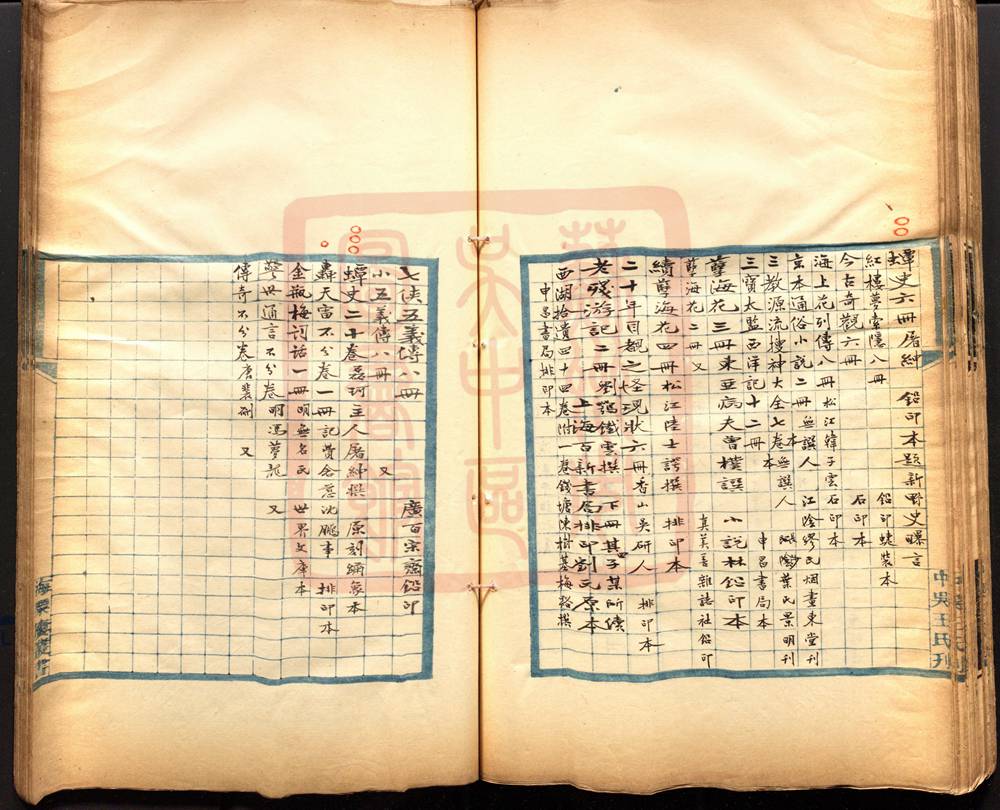 蟫史六冊屠紳 鉛印本題新野史曝言
紅樓夢索隱八冊 鉛印蜨裝本
今古奇觀六冊 石印本
海上花列傳八冊松江韓子雲 石印本
京本通俗小說二冊 無譔人 江陰繆氏烟畫東堂刊本
三教源流搜神大全七卷無譔人 葉氏景明刊本
三寶太監西洋記十二冊 申昌書局本
孽海花三冊東亞病夫曾樸譔 小說林鉛印本
孽海花二冊 又 真美善雜誌社鉛印
續孽海花四冊松江陸士諤撰 排印本
二十年目覩之怪現狀六冊香山吳研人 排印本
老殘游記二冊劉鶚鐵雲撰 下冊其子某所續
上海百新書局排印劉氏原本
西湖拾遺四十四卷附一卷錢塘陳樹基梅谿撰
申昌書局排印本
中吳王氏刊
七俠五義傳八冊 廣百宋齋鉛印
小五義傳八冊 又
蟫史二十卷磊砢主人屠紳撰 原刻繡象本
轟天雷不分卷一冊記費念慈沈鵬事 排印本
金瓶梅詞話一冊明無名氏 世界文庫本
警世通言不分卷明馮夢龍 又
傳奇不分卷唐裴鉶 又